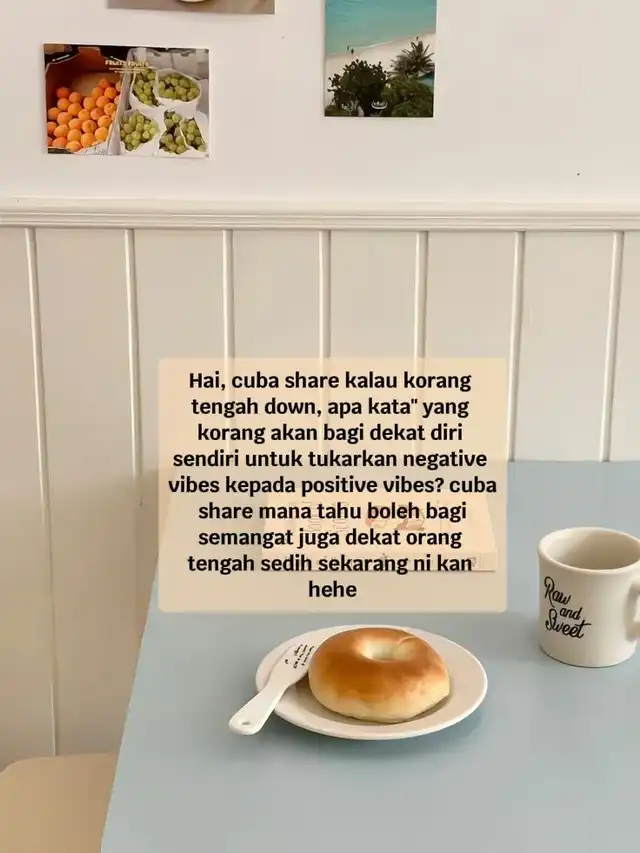 Hai, cuba share kalau korang
tengah down, apa kata" yang
korang akan bagi dekat diri
sendiri untuk tukarkan negative
vibes kepada positive vibes? cuba
share mana tahu boleh bagi
semangat juga dekat orang
tengah sedih sekarang ni kan
hehe
Raw
and
Sweet